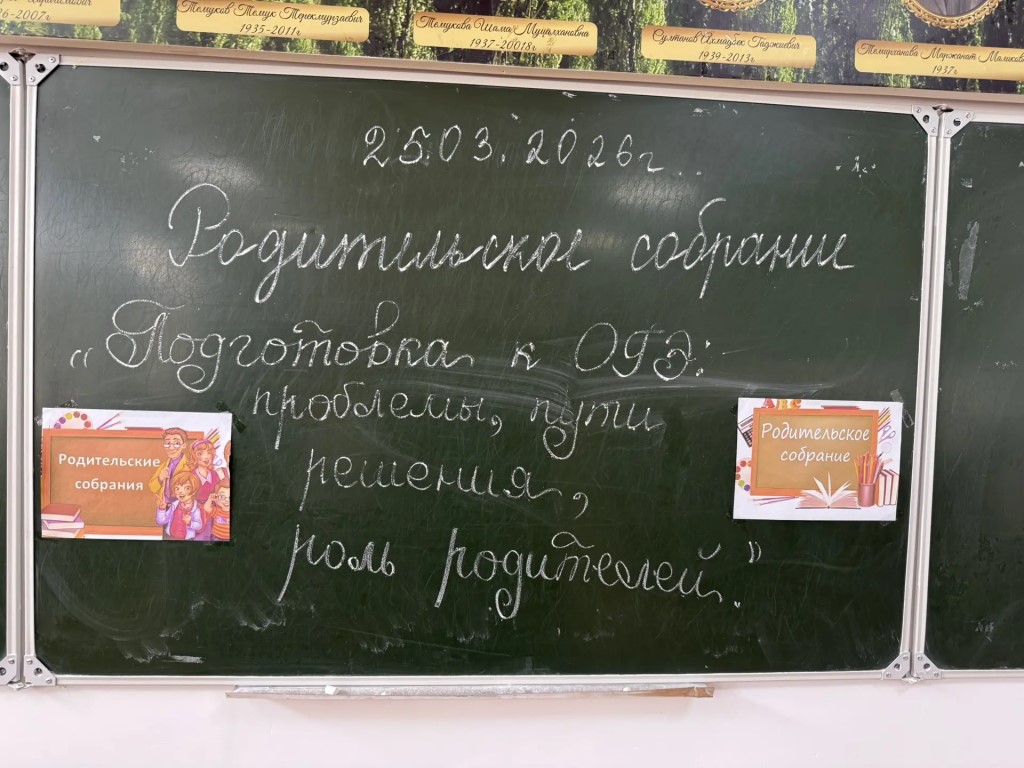 26-2007г
Темуков Темук Терекмурзаевич
1935-2011г
Темукова Шама Муцалхановна
1937-20018г
Султанов Ахмадбек Гаджиевич
1939-2013г
Темирханова Маржанат
1937г
25.03.2026г.
Родительское собрание
„Подготовка к ОГЭ:
проблемы, пути
решения,
роль родителей."
Родительские
собрания
АВС
Родительское
собрание